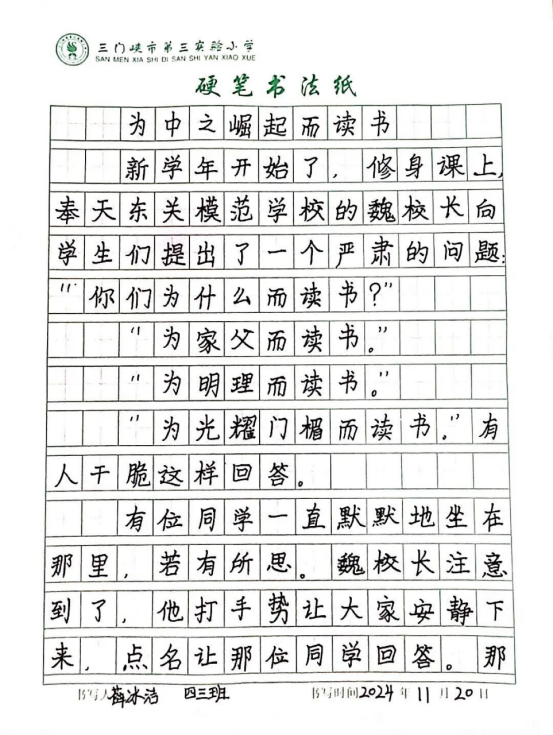 三门峡市第三实验小学
SAN MEN XIA SHI DI SAN SHI YAN XIAO XUE
硬笔书法纸
为中之崛起而读书
新学年开始了，修身课上，
奉天东关模范学校的魏校长向
学生们提出了一个严肃的问题：
“你们为什么而读书？”
“为家父而读书。”
“为明理而读书。”
“为光耀门楣而读书。”有
人干脆这样回答。
有位同学一直默默地坐在
那里，若有所思。魏校长注意
到了，他打手势让大家安静下
来，点名让那位同学回答。那
书写人薛冰洁 四三班 书写时间2024年11月20日